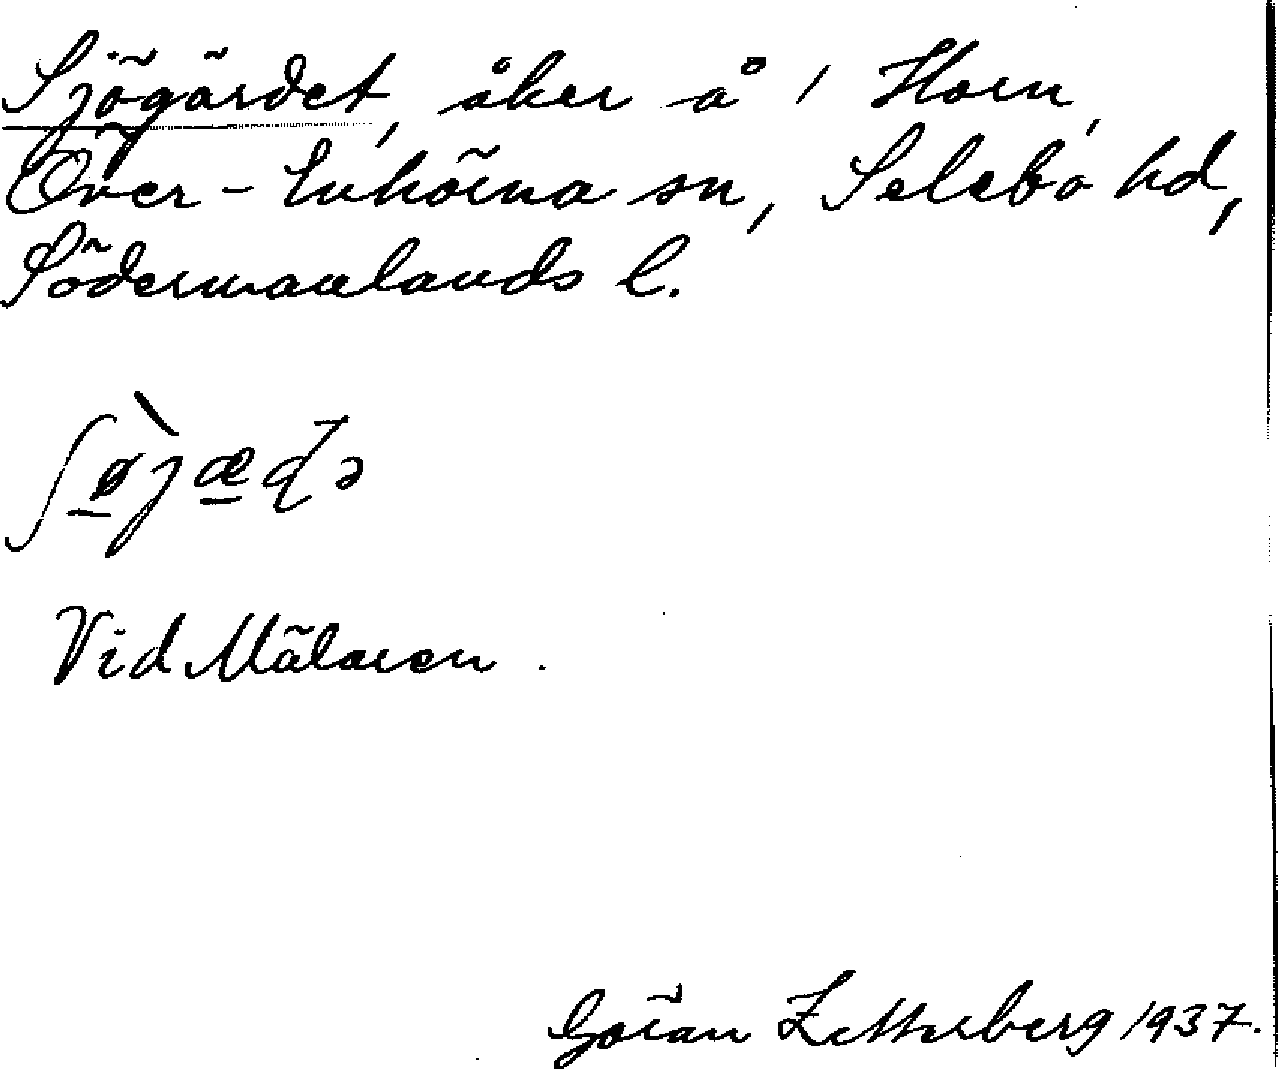 Sjögärdet, åker å 1 Horn,
Över-Enhörna sn, Selebo hd,
Södermanlands l.
Vid Mälaren.
Göran Zetterberg 1937.